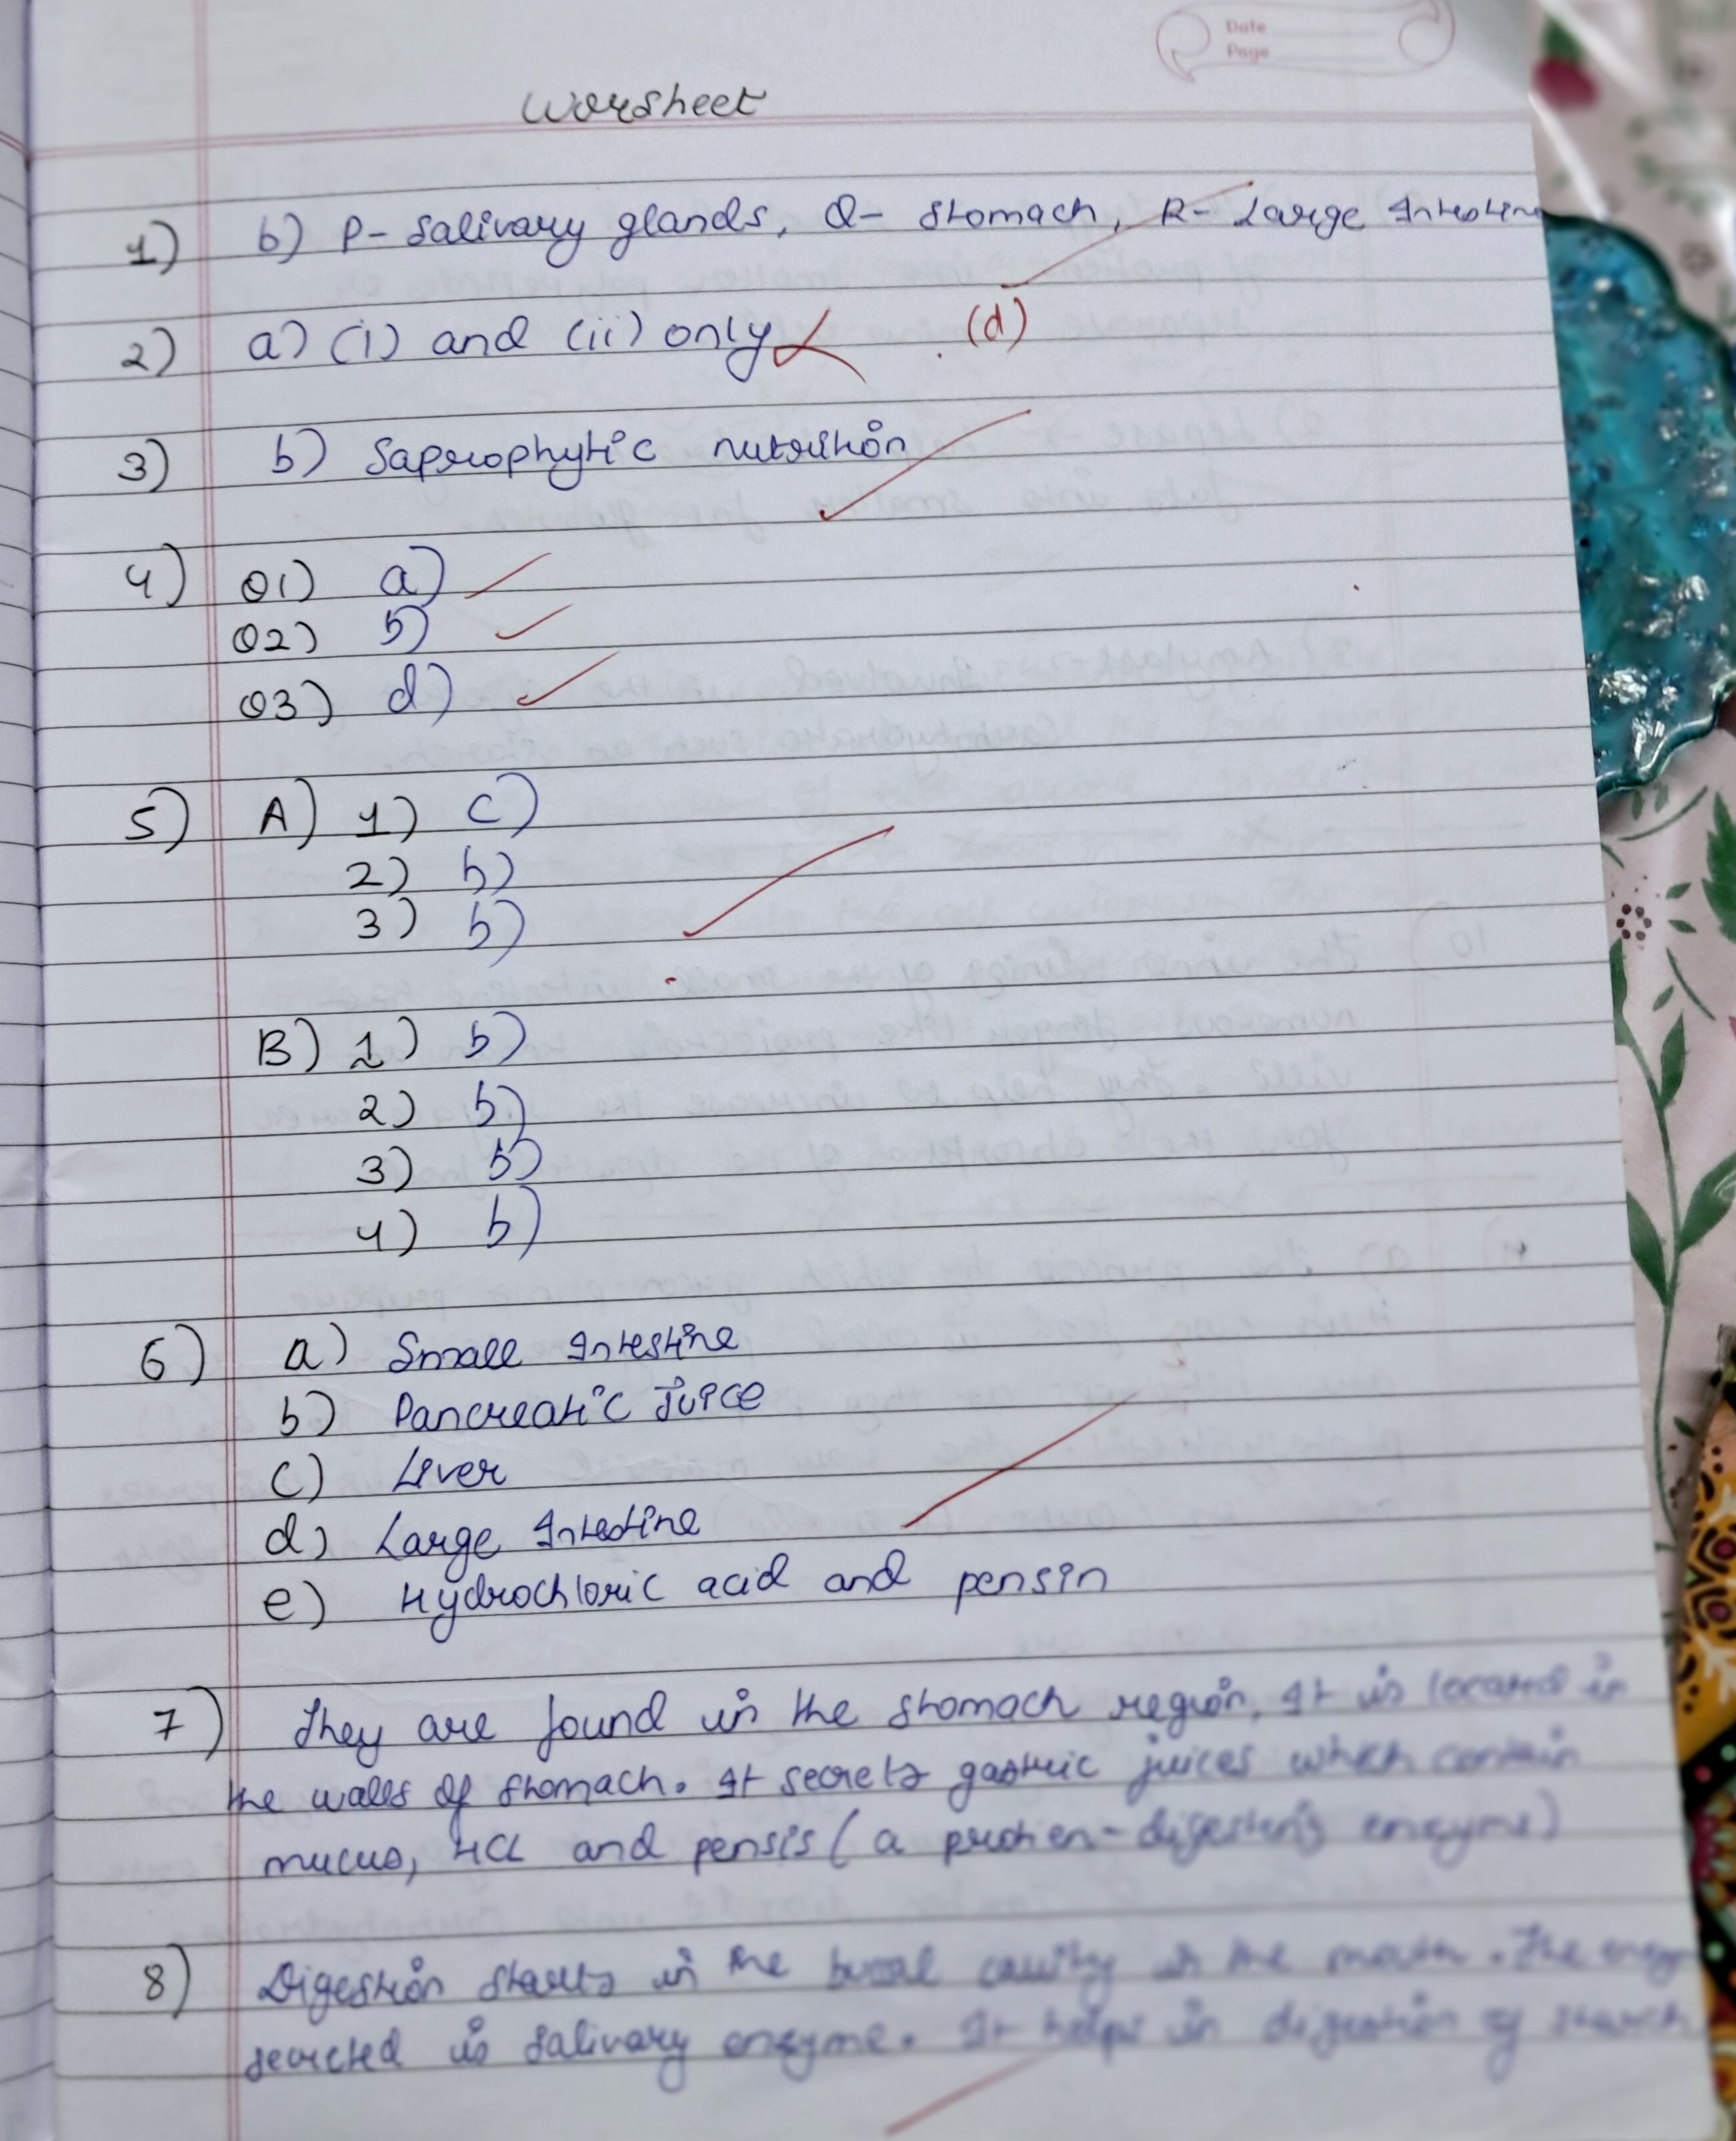 Date
Page
Worsheet
1) b) P- Salivary glands, Q- Stomach, R- Large Intestine
2) a) (i) and (ii) only (d)
3) b) Saprophytic nutrition
4) Q1) a)
Q2) b)
Q3) d)
5) A) 1) c)
2) b)
3) b)
B) 1) b)
2) b)
3) b)
4) b)
6) a) Small Intestine
b) Pancreatic Juice
c) Liver
d) Large Intestine
e) Hydrochloric acid and pensin
7) They are found in the stomach region, It is located in
the walls of stomach. It secrets gastric juices which contain
mucus, HCL and pensis ( a protien-digesting enzyme)
8) Digestion starts in the bucal cavity in the mouth. The
secreted is salivary enzyme. It helps in digestion of starch